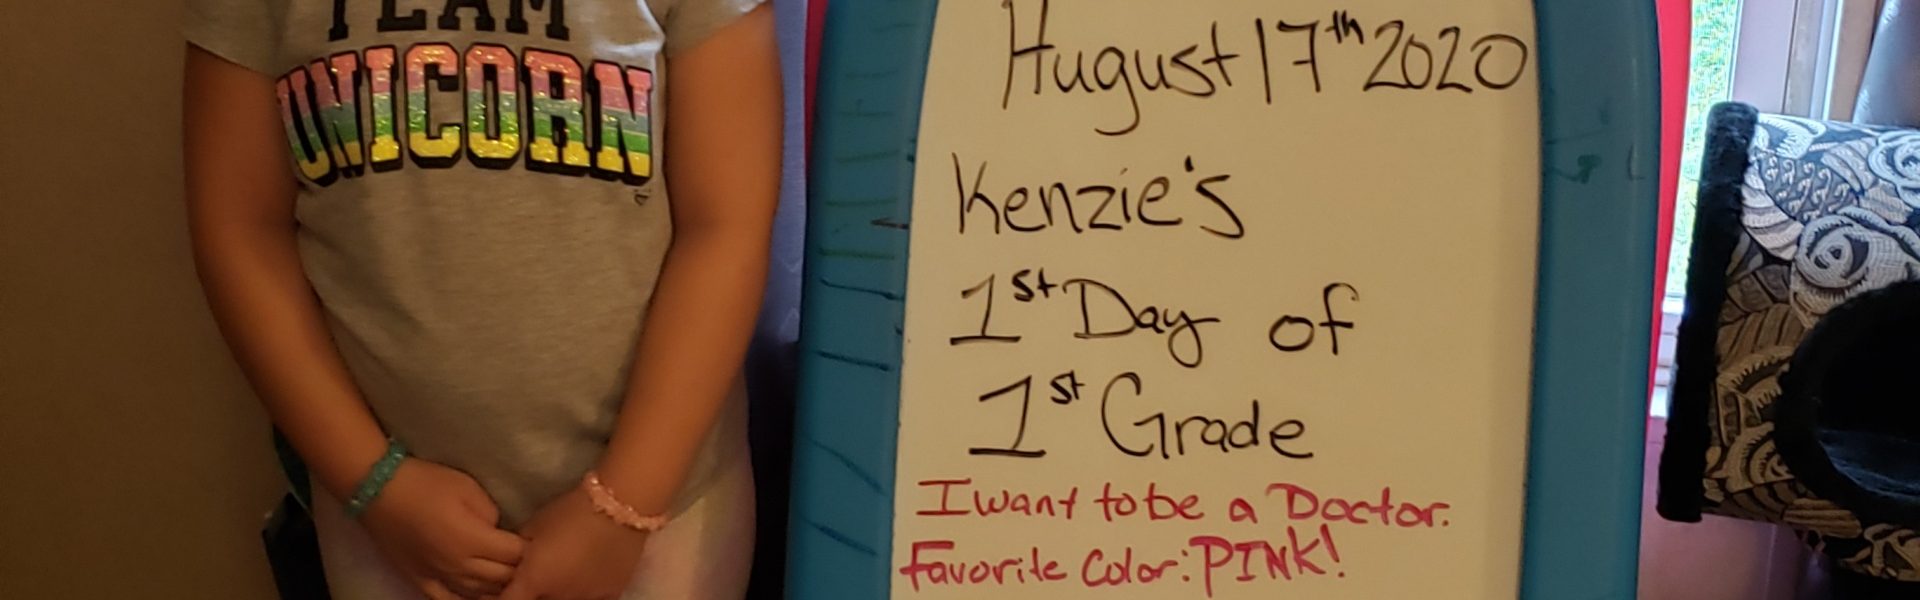 TEAM
UNICORN
August 17th 2020
Kenzie's
1st Day of
1st Grade
I want to be a Doctor.
Favorite Color: PINK!